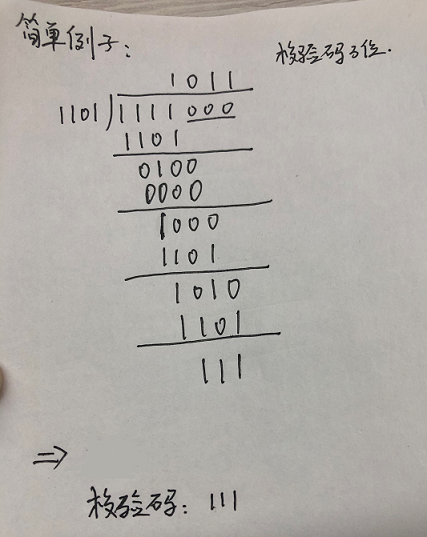 简单例子：
核验码3位.
1011
1101)1111000
1101
0100
0000
1000
1101
1010
1101
111
⇒
核验码：111